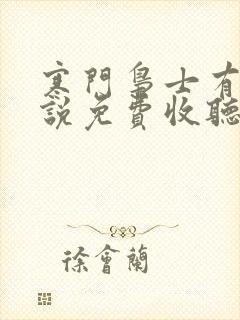 寒門梟士有
說免費收聽
徐會蘭